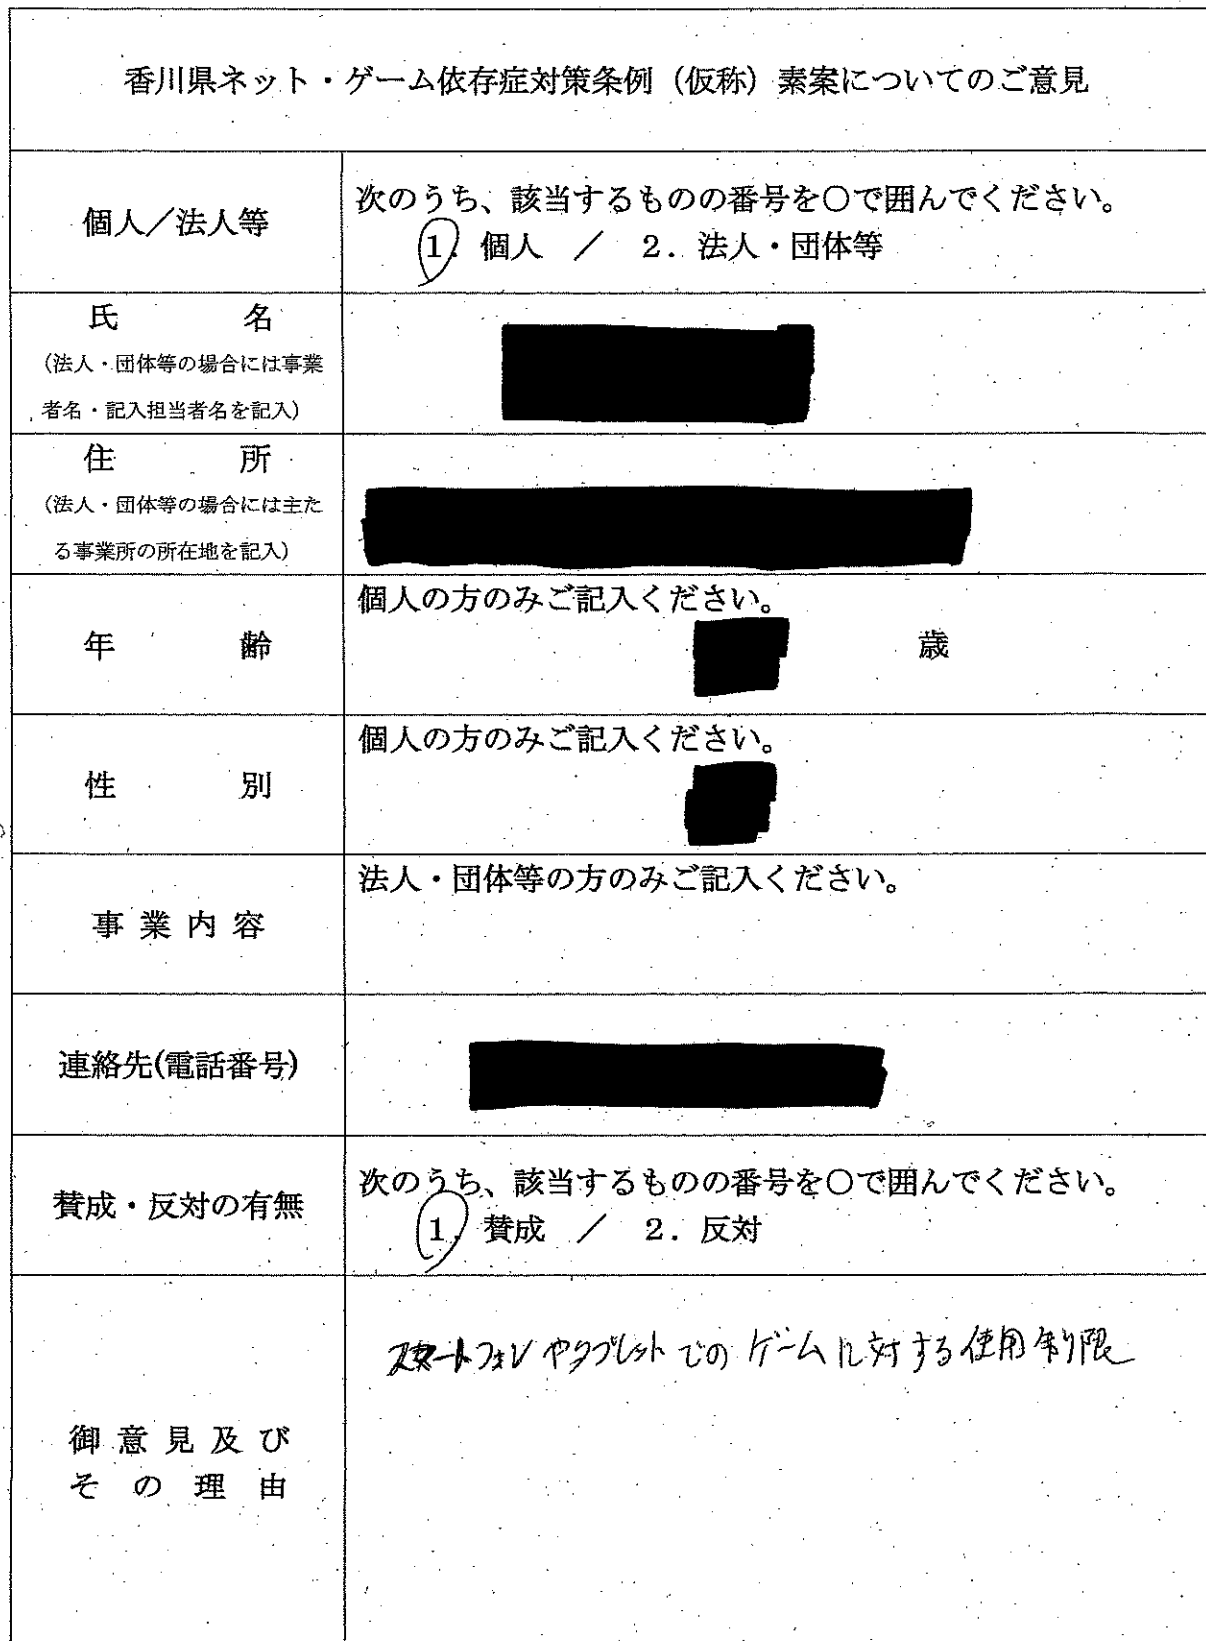 香川県ネット・ゲーム依存症対策条例（仮称）素案についてのご意見
個人／法人等
次のうち、該当するものの番号を○で囲んでください。
1. 個人 ／ 2. 法人・団体等
氏 名
（法人・団体等の場合には事業
者名・記入担当者名を記入）
住 所
（法人・団体等の場合には主た
る事業所の所在地を記入）
年 齢
個人の方のみご記入ください。
歳
性 別
個人の方のみご記入ください。
事業内容
法人・団体等の方のみご記入ください。
連絡先(電話番号)
賛成・反対の有無
次のうち、該当するものの番号を○で囲んでください。
1. 賛成 ／ 2. 反対
御意見及び
その理由
スマートフォンやタブレットでのゲームに対する使用制限